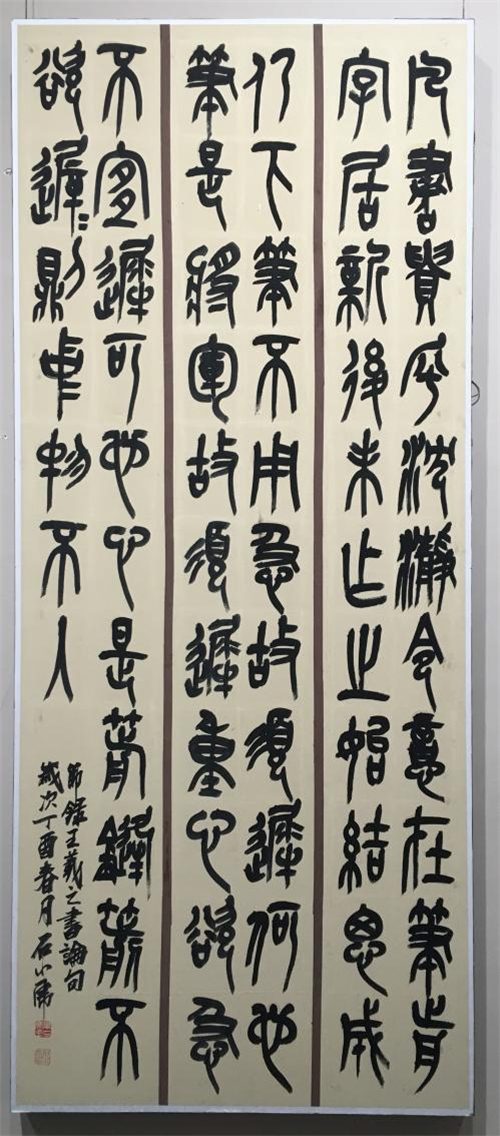 凡書貴乎沈瀞令意在筆歬
字居新後未作之始結思成
仍下筆不用急故須遲何也
筆是將軍故須遲重心欲急
不宜遲可也心是箭鏠箭不
欲遲〻則中物不入
節錄王羲之書論句
歲次丁酉春月石小